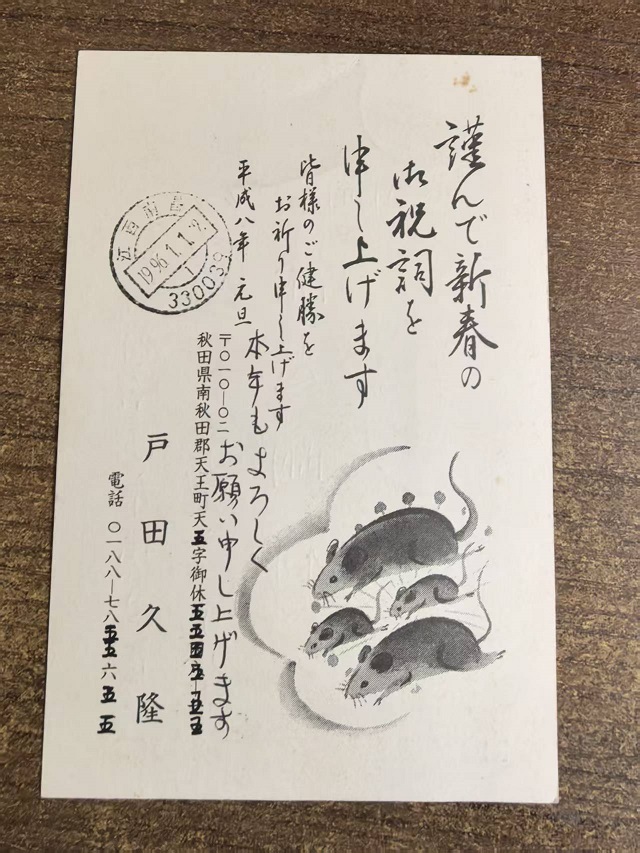 謹んで新春の
御祝詞を
申し上げます
皆様のご健勝を
お祈り申し上げます
平成八年 元旦
本年もよろしく
お願い申し上げます
〒〇一〇-〇二
秋田県南秋田郡天王町天五字御休五五四五-五五
戸田久隆
電話 〇一八八-七八五五六五五
1996.1.1
330039